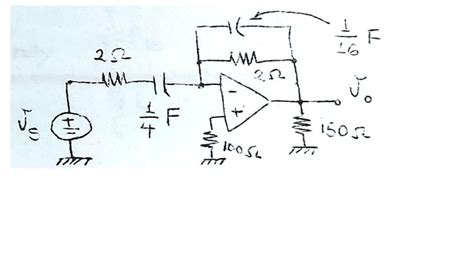 1/16 F
2Ω
2Ω
1/4 F
Vs
+
-
-
+
Vo
100Ω
150Ω